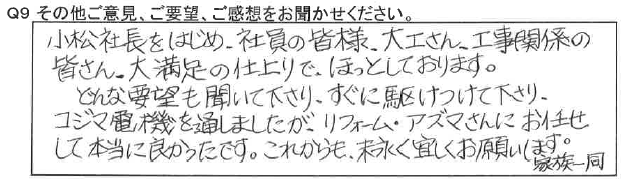 Q9 その他ご意見、ご要望、ご感想をお聞かせください。
小松社長をはじめ、社員の皆様、大工さん、工事関係の
皆さん、大満足の仕上りで、ほっとしております。
どんな要望も聞いて下さり、すぐに駆けつけて下さり、
コジマ電機を通しましたが、リフォーム・アズマさんにお任せ
して本当に良かったです。これからも、末永く宜しくお願いします。
家族一同